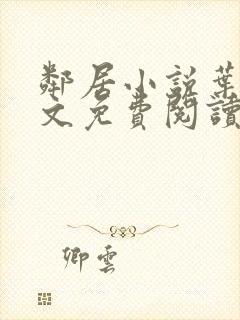 鄰居小說葉
文免費閱讀
卿雲